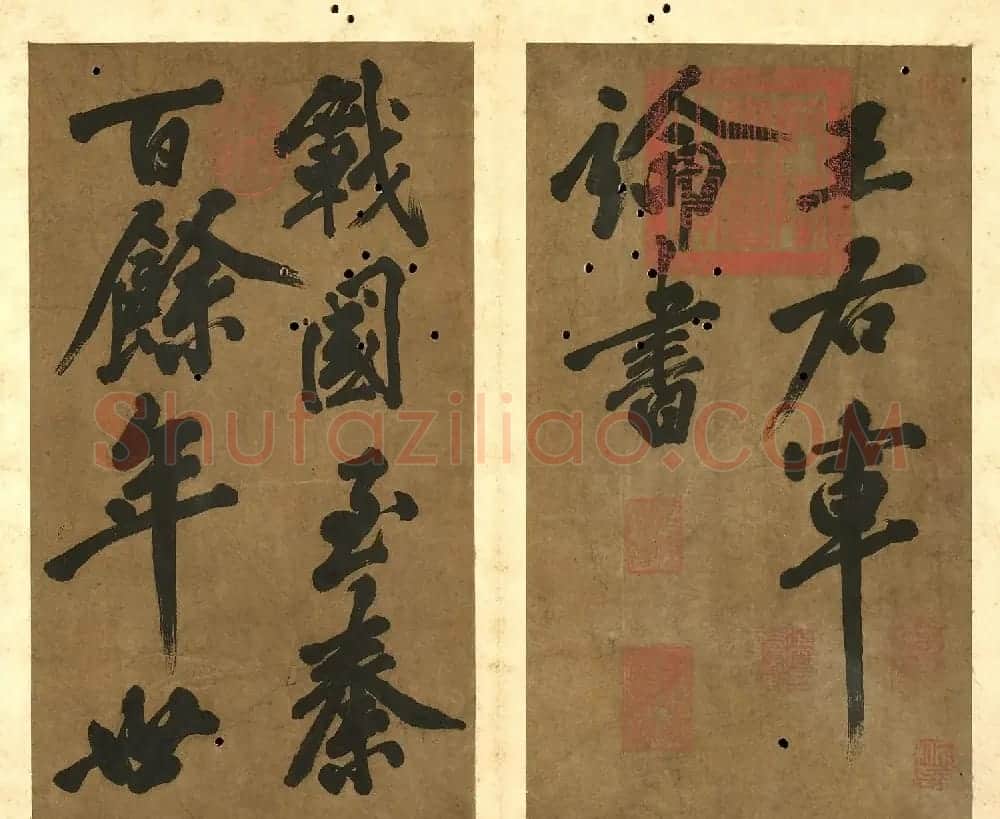 王右軍
論書
戰國至秦
百餘年世
Shufaziliao.COM